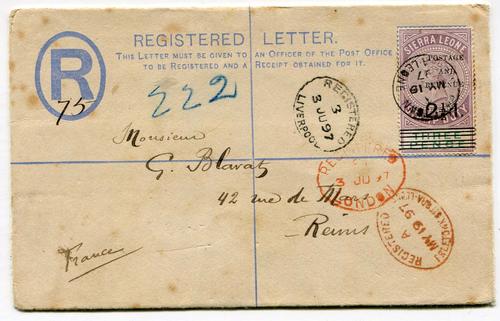 REGISTERED LETTER.
THIS LETTER MUST BE GIVEN TO AN OFFICER OF THE POST OFFICE
TO BE REGISTERED AND A RECEIPT OBTAINED FOR IT.
R
75
222
REGISTERED
3
3 JU 97
LIVERPOOL
SIERRA LEONE
POSTAGE
AND
SIERRA LEONE
MY 19
97
THREE
PENCE
REGISTERED
3 JU 97
LONDON
REGISTERED
A
MY 19 97
FREETOWN SIERRA-LEONE
Monsieur
G. Blavat
42 rue de Mars
Reims
France